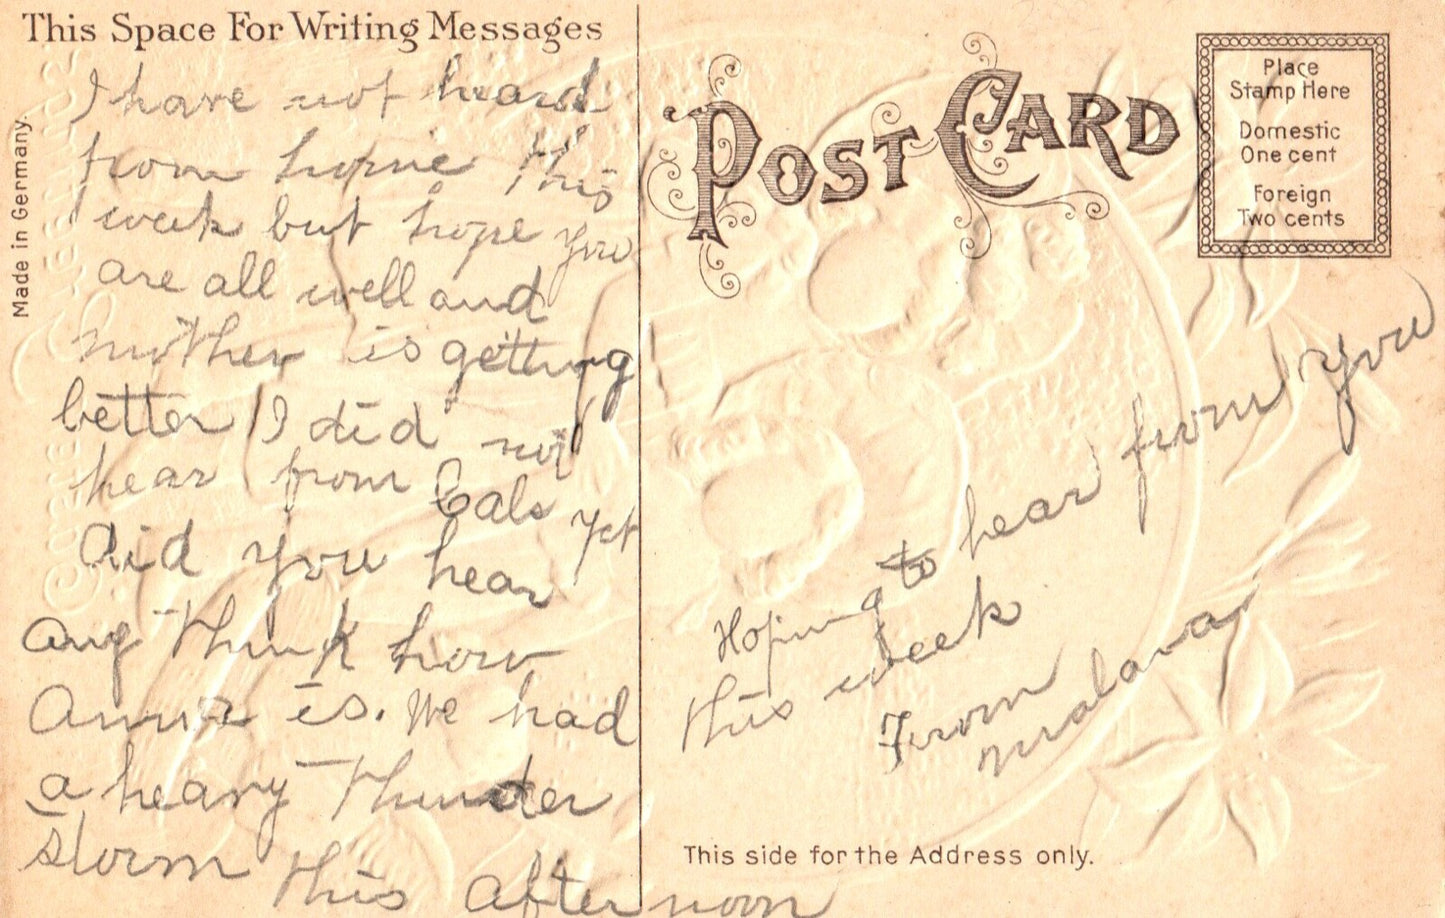 This Space For Writing Messages
Made in Germany.
I have not heard
from home this
week but hope you
are all well and
mother is getting
better I did not
hear from Cals yet
did you hear
any think how
Anna is. We had
a heavy thunder
storm this afternoon
POST CARD
Place
Stamp Here
Domestic
One cent
Foreign
Two cents
Hoping to hear from you
this week
From
malava
This side for the Address only.